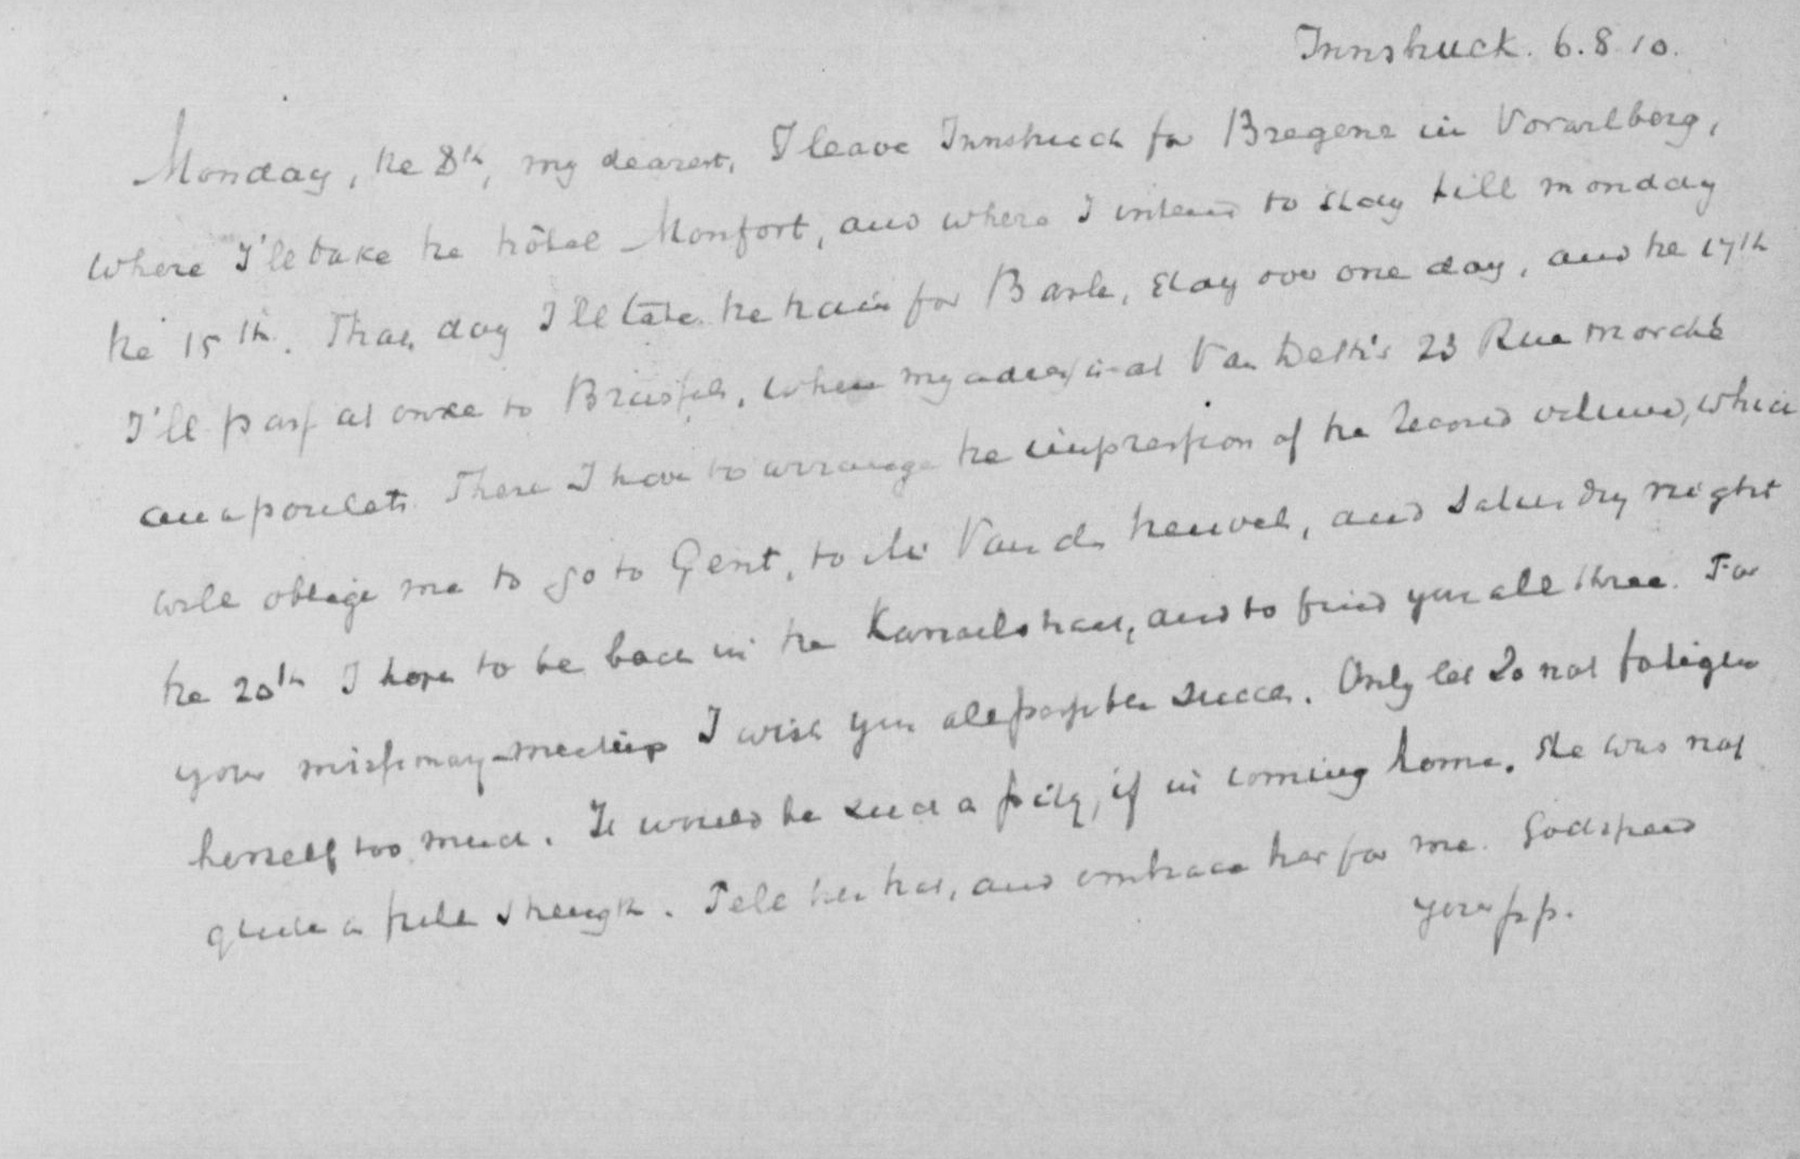 Innsbruck. 6.8.10.
Monday, the 8th, my dearest, I leave Innsbruck for Bregenz in Vorarlberg,
where I'll take the hôtel Monfort, and where I intend to stay till monday
the 15th. That day I'll take the train for Basle, stay over one day, and the 17th
I'll pass at once to Brussels, where my adress is at Van 23 Rue Marché
aux poulets. There I have to arrange the impression of the second volume, which
will oblige me to go to Gent, to Mr Van den Heuvel, and Saturday night
the 20th I hope to be back in the Kanaalstraat, and to find you all three. For
your missionary-meeting I wish you all possible succes. Only let Jo not fatigue
herself too much. It would be such a pity, if in coming home, she was not
quite in full strength. Tell her that, and embrace her for me. Godspeed
your pp.